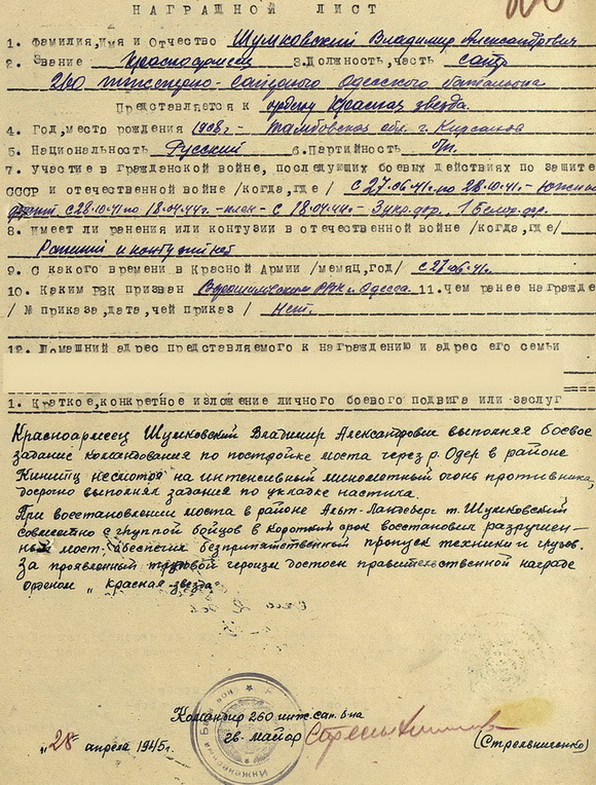 НАГРАДНОЙ ЛИСТ
1. Фамилия,Имя и Отчество Шумковский Владимир Александрович
2. Звание Красноармеец 3.Должность,часть сапер
260 инженерно-саперного Одесского батальона
Представляется к ордену Красная звезда.
4. Год,место рождения 1908г - Тамбовская обл. г. Кирсанов
5. Национальность Русский 6.Партийность б/п.
7. Участие в Гражданской войне, последующих боевых действиях по защите
СССР и отечественной войне /когда,где/ с 27.06.41г. по 28.10.41г.- Южный
фронт, с 28.10.41 по 18.04.44г.-плен- с 18.04.44г.- 3 укр.фр., 1 Белор.фр.
8. имеет ли ранения или контузии в отечественной войне /когда,где/
Ранений и контузий нет
9. С какого времени в Красной Армии /месяц,год/ с 27.06.41г.
10. Каким РВК призван Ворошиловским РВК г. Одесса. 11.чем ранее награжде
/ № приказа,дата,чей приказ / Нет.
12. Домашний адрес представляемого к награждению и адрес его семьи
1. Краткое,конкретное изложение личного боевого подвига или заслуг
Красноармеец Шумковский Владимир Александрович выполняя боевое
задание командования по постройке моста через р. Одер в районе
Киниту несмотря на интенсивный минометный огонь противника,
досрочно выполнял задания по укладке настила.
При восстановлении моста в районе Альт-Ландсберг т. Шумковский
совместно с группой бойцов в короткий срок восстановил разрушен-
ный мост. обеспечив безпрепятственный пропуск техники и грузов.
За проявленный трудовой героизм достоен правительственной награде
орденом „Красная звезда"
Командир 260 инж. сап. б-на
гв. майор (Стрельниченко)
„28" апреля 1945г.